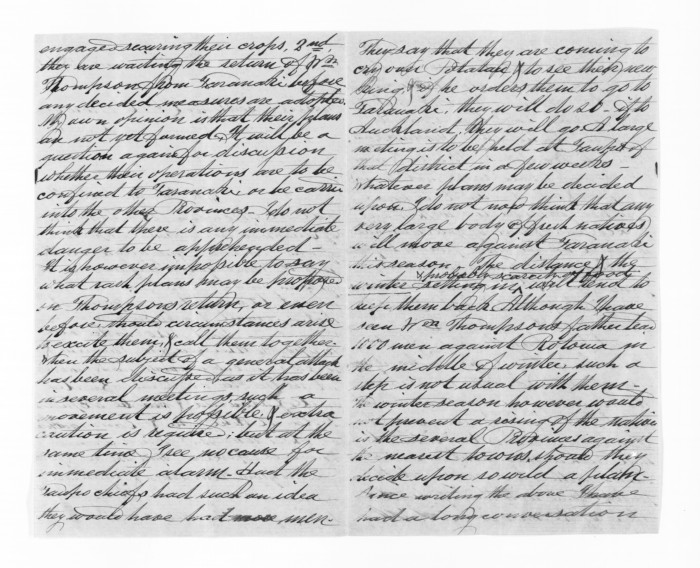 engaged securing their crops, 2nd,
they are waiting the return of Wm
Thompson from Taranaki before
any decided measures are adopted
My own opinion is that their plans
are not yet formed, It will be a
question again for discussion
whether their operations are to be
confined to Taranaki or be carri
into the other Provinces I do not
think that there is any immediate
danger to be apprehended -
It is however impossible to say
what rash plans may be proposed
on Thompsons return, or even
before, should circumstances arise
to excite them, & call them together
when the subject of a general attack
has been discussed, as it has been
in several meetings, such a
movement is possible & extra
caution is requisite; but at the
same time I see no cause for
immediate alarm. Had the
Taupo chiefs had such an idea
they would have had more men -
They say that they are coming to
cry over Potatau & to see their new
King; if he orders them to go to
Taranaki, they will do so - if to
Auckland, they will go A large
meeting is to be held at Taupo of
that District in a few weeks -
Whatever plans may be decided
upon I do not now think that any
very large body of fresh natives
will move against Taranaki
this season. The distance & the
& probable scarcity of food
winter setting in will tend to
keep them back Although I have
seen Wm Thompsons father lead
1000 men against Rotorua in
the middle of winter, such a
step is not usual with them -
the winter season however would
not prevent a rising of the natives
in the several Provinces against
the nearest towns, should they
decide upon so wild a plan -
Since writing the above I have
had a long conversation